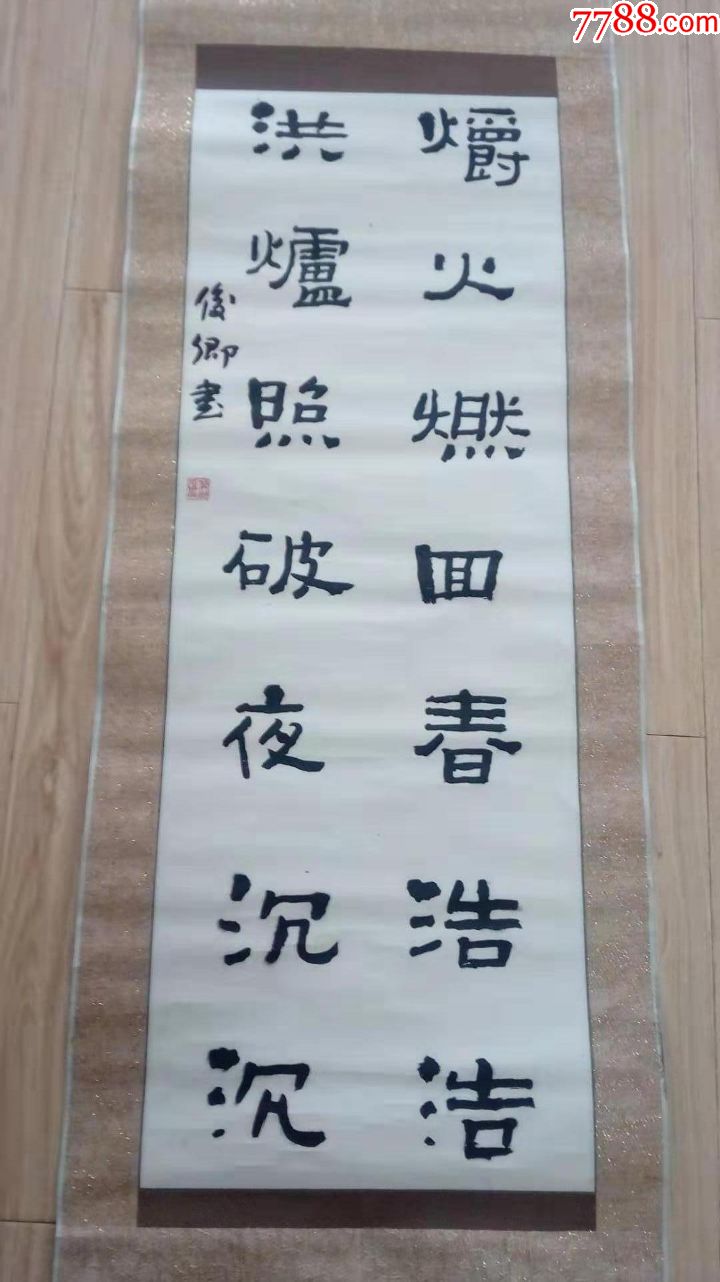 7788.com
爝火燃回春浩浩
洪爐照破夜沉沉
俊卿書